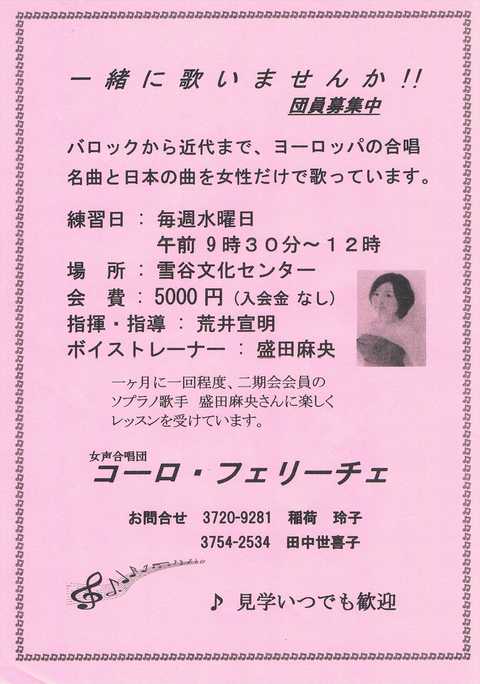 一緒に歌いませんか!!
団員募集中
バロックから近代まで、ヨーロッパの合唱
名曲と日本の曲を女性だけで歌っています。
練習日 : 毎週水曜日
午前 9時30分～12時
場 所 : 雪谷文化センター
会 費 : 5000円 (入会金 なし)
指揮・指導 : 荒井宣明
ボイストレーナー : 盛田麻央
一ヶ月に一回程度、二期会会員の
ソプラノ歌手 盛田麻央さんに楽しく
レッスンを受けています。
女声合唱団
コーロ・フェリーチェ
お問合せ 3720-9281 稲荷 玲子
3754-2534 田中世喜子
♪ 見学いつでも歓迎